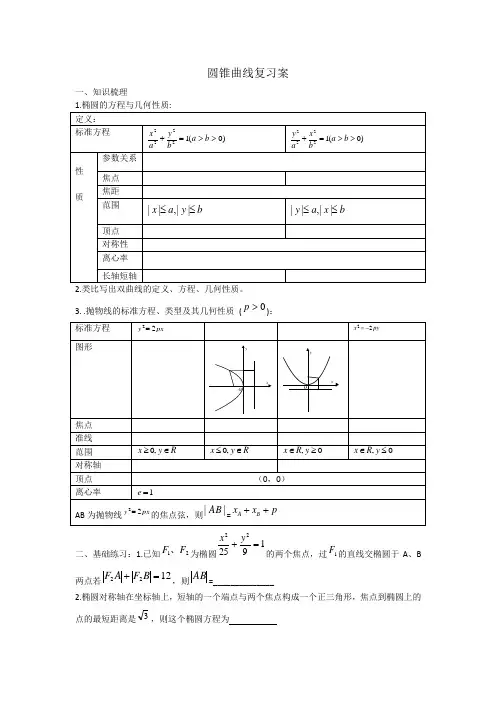 圆锥曲线复习案
一、知识梳理
1.椭圆的方程与几何性质:
定义:
标准方程 x²/a² + y²/b² = 1(a > b > 0) y²/a² + x²/b² = 1(a > b > 0)
性质 参数关系
焦点
焦距
范围 | x |≤ a,| y |≤ b | y |≤ a,| x |≤ b
顶点
对称性
离心率
长轴短轴
2.类比写出双曲线的定义、方程、几何性质。
3. .抛物线的标准方程、类型及其几何性质 ( p > 0 ):
标准方程 y² = 2px x² = −2py
图形 y x O y x O
焦点
准线
范围 x ≥ 0, y ∈ R x ≤ 0, y ∈ R x ∈ R, y ≥ 0 x ∈ R, y ≤ 0
对称轴
顶点 (0,0)
离心率 e = 1
AB 为抛物线 y² = 2px 的焦点弦,则 | AB | = x_A + x_B + p
二、基础练习:1.已知 F₁、F₂ 为椭圆 x²/25 + y²/9 = 1 的两个焦点,过 F₁ 的直线交椭圆于 A、B
两点若 |F₂A| + |F₂B| = 12 ,则 |AB| =______________
2.椭圆对称轴在坐标轴上,短轴的一个端点与两个焦点构成一个正三角形,焦点到椭圆上的
点的最短距离是 √3 ,则这个椭圆方程为